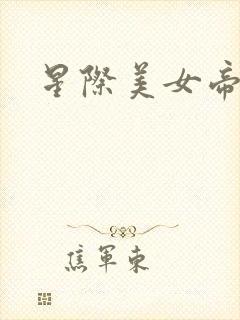 星際美女帝
焦軍東